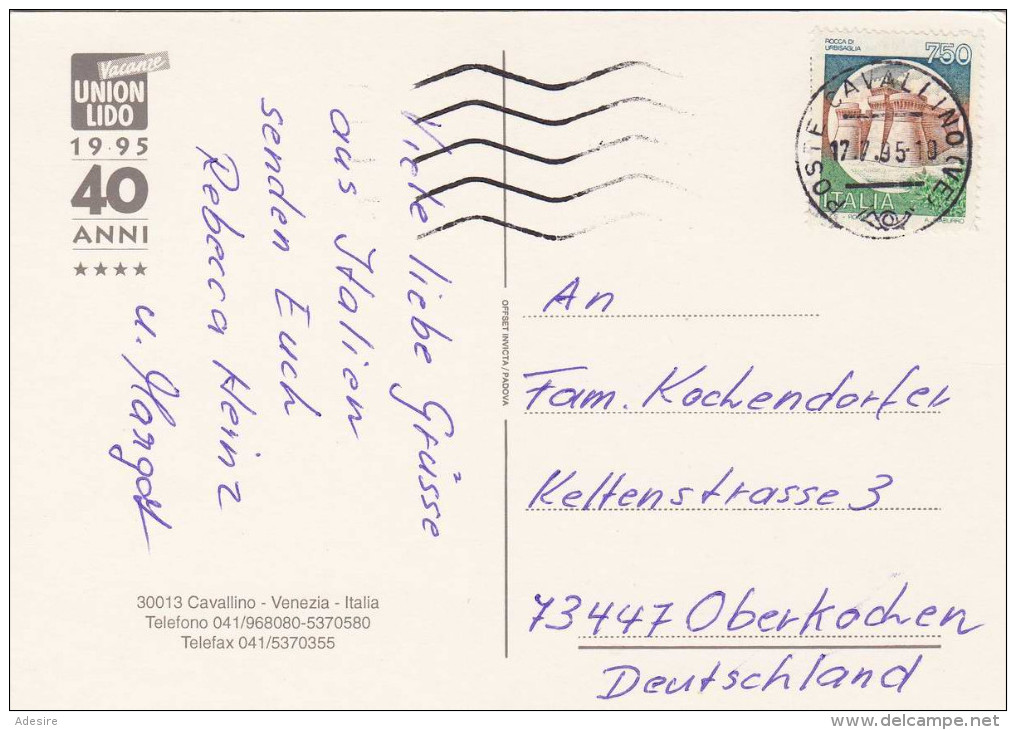 Vacanze
UNION
LIDO
19.95
40
ANNI
Viele liebe Grüsse
aus Italien
senden Euch
Rebecca Heinz
u. Margot
30013 Cavallino - Venezia - Italia
Telefono 041/968080-5370580
Telefax 041/5370355
OFFSET INVICTA / PADOVA
ROCCA DI
URBISAGLIA
750
POSTE CAVALLINO (VE)
ITALIA
An
Fam. Kochendorfer
Keltenstrasse 3
73447 Oberkochen
Deutschland
Adesire
delcampe.net